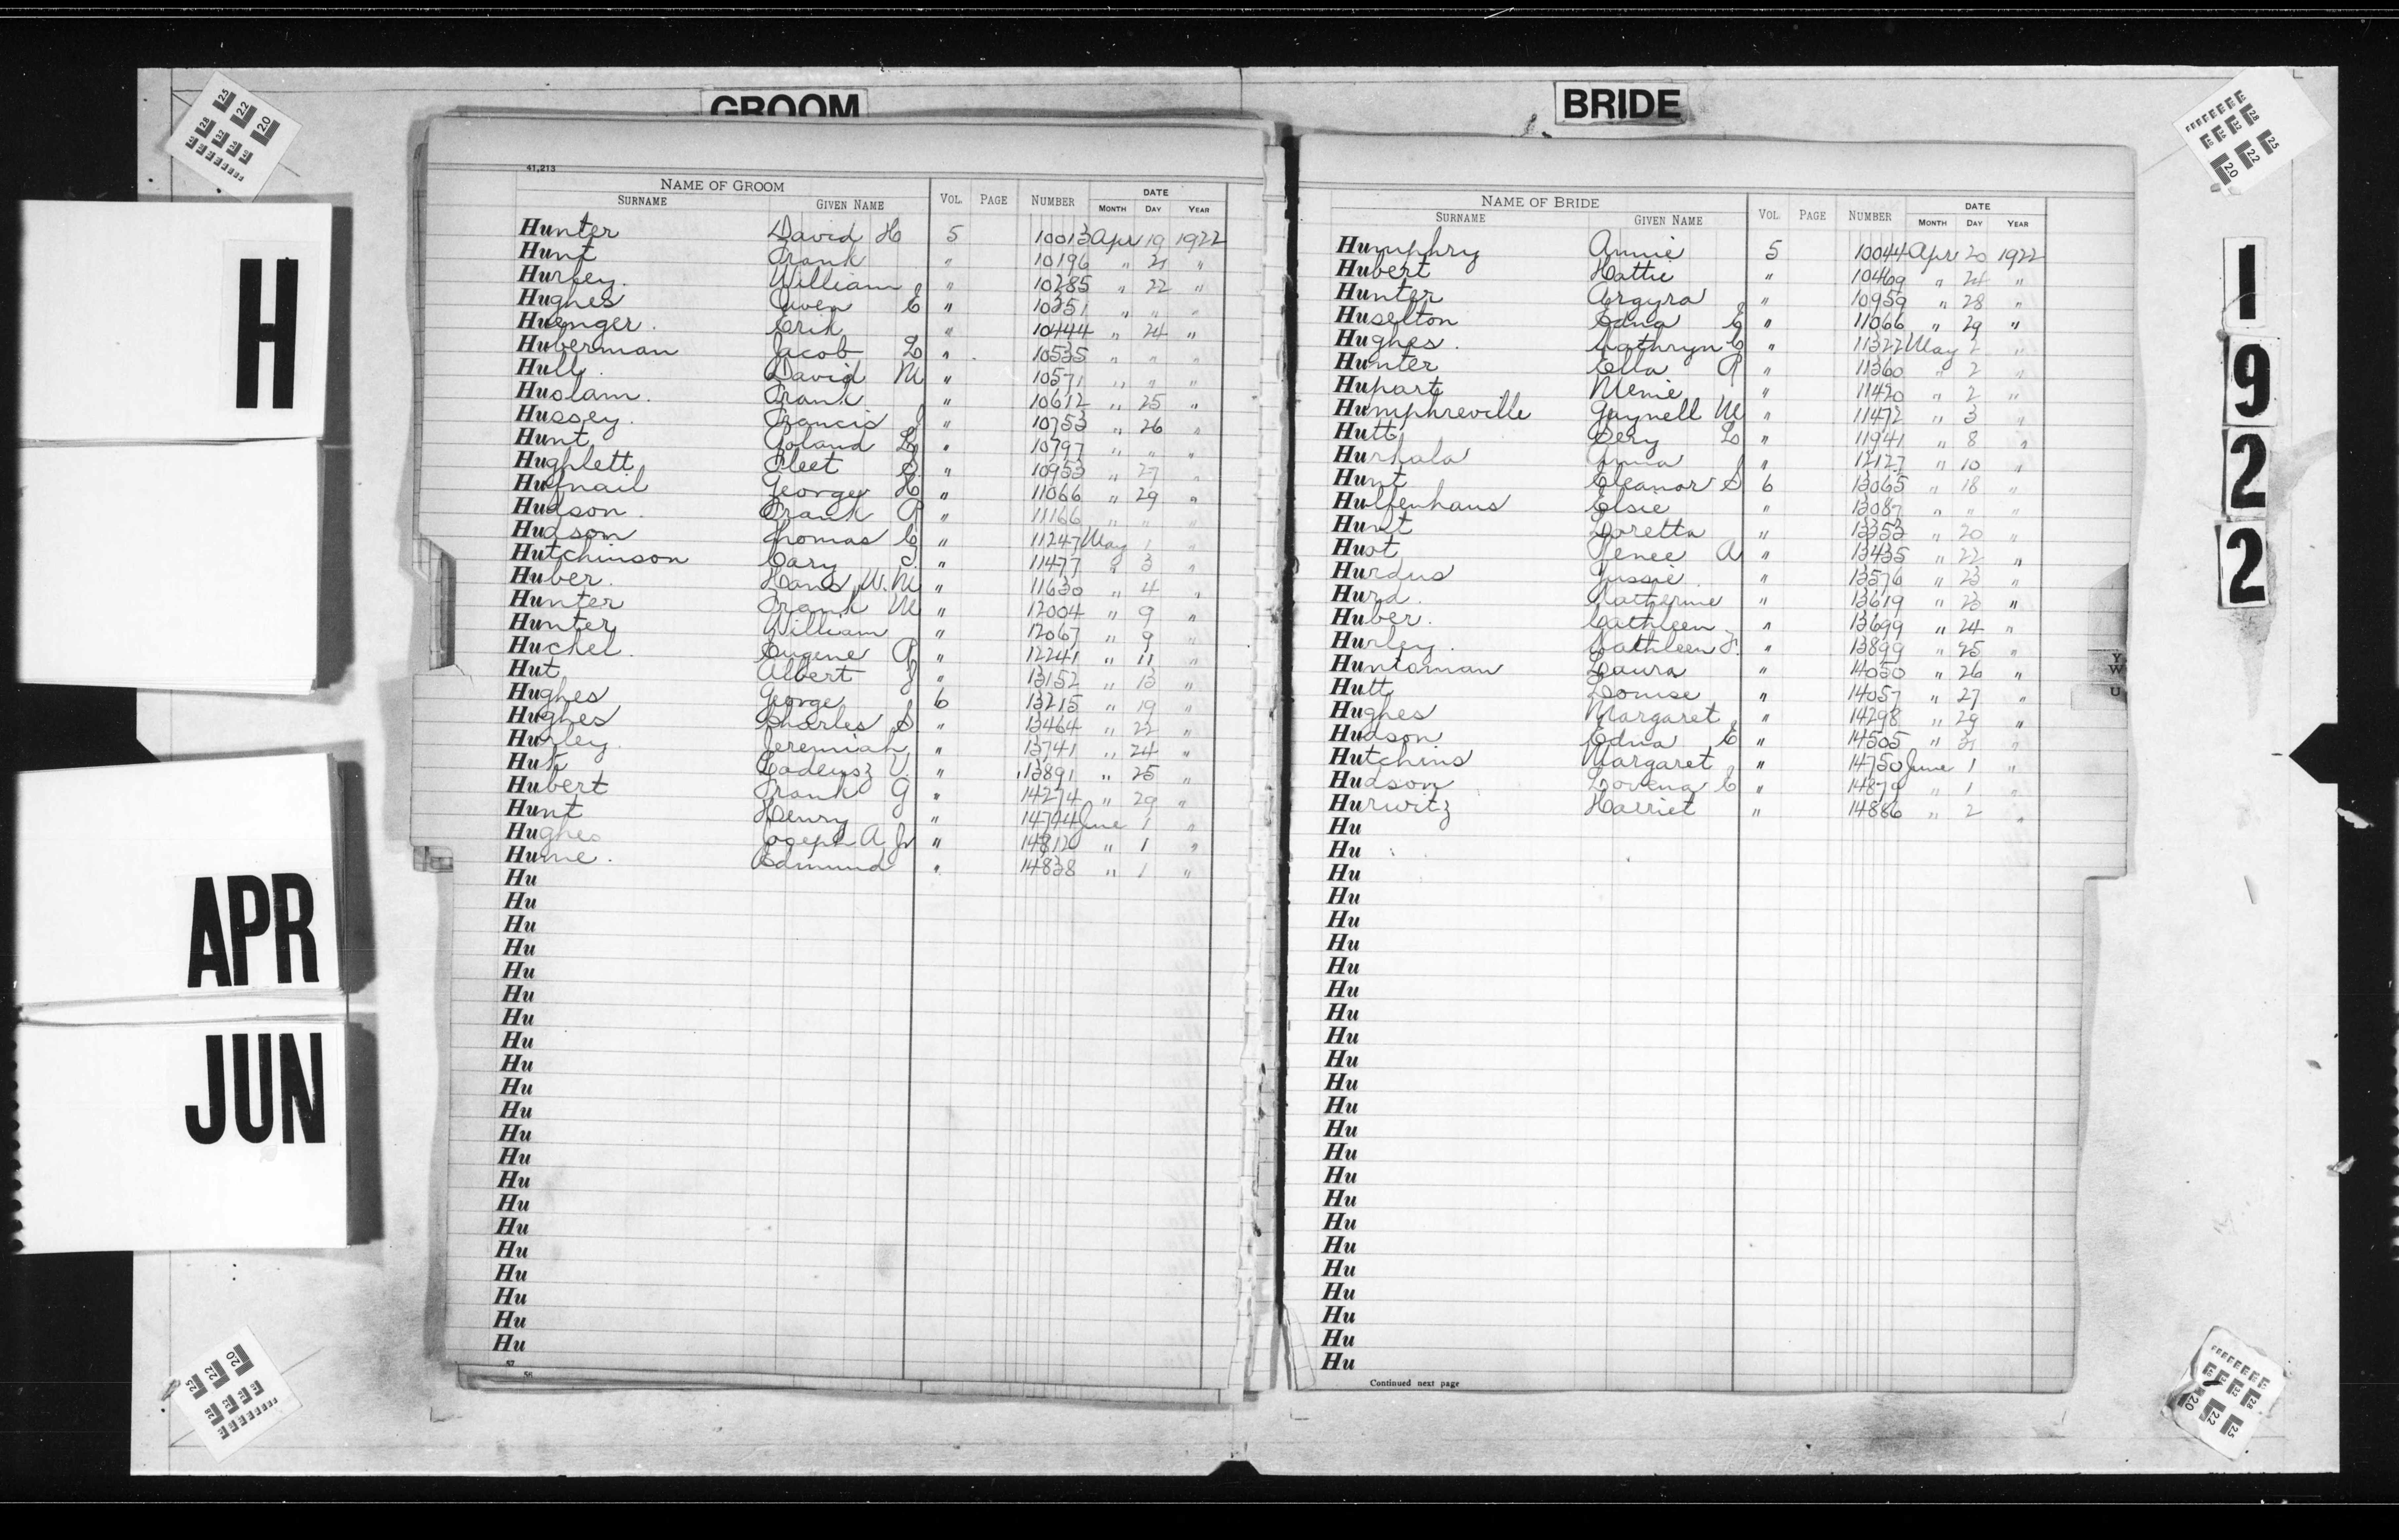 GROOM
BRIDE
H
APR
JUN
1
9
2
2
41,213
NAME OF GROOM
SURNAME GIVEN NAME VOL. PAGE NUMBER DATE MONTH DAY YEAR
Hunter David H 5 10013 Apr 19 1922
Hunt Frank " 10196 " 21 "
Hurley. William " 10285 " 22 "
Hughes Owen E " 10351 " " "
Huenger. Erik " 10444 " 24 "
Huberman Jacob L " 10535 " " "
Hull. David M " 10571 " " "
Huslam. Frank " 10612 " 25 "
Hussey. Francis J " 10753 " 26 "
Hunt Roland L " 10797 " " "
Hughlett Fleet S " 10953 " 27 "
Hufnail George H " 11066 " 29 "
Hudson. Frank P " 11166 " " "
Hudson Thomas C " 11247 May 1 "
Hutchinson Cary T. " 11477 " 3 "
Huber. Hans W. M " 11630 " 4 "
Hunter Frank M " 12004 " 9 "
Hunter William " 12067 " 9 "
Huchel. Eugene P " 12241 " 11 "
Hut Albert J " 13152 " 13 "
Hughes George 6 13215 " 19 "
Hughes Charles S " 13464 " 22 "
Hurley. Jeremiah " 13741 " 24 "
Huk V. " 13891 " 25 "
Hubert Frank G " 14274 " 29 "
Hunt Henry " 14744 June 1 "
Hughes Joseph A Jr " 14812 " 1 "
Hume. Edmund " 14838 " 1 "
Hu
Hu
Hu
Hu
Hu
Hu
Hu
Hu
Hu
Hu
Hu
Hu
Hu
Hu
Hu
Hu
Hu
Hu
Hu
Hu
Hu
57
56
NAME OF BRIDE
SURNAME GIVEN NAME VOL. PAGE NUMBER DATE MONTH DAY YEAR
Humphry Annie 5 10044 Apr 20 1922
Hubert Hattie " 10469 " 24 "
Hunter Argyra " 10959 " 28 "
Huselton Edna E " 11066 " 29 "
Hughes. Kathryn C " 11322 May 2 "
Hunter Ella R " 11360 " 2 "
Hupart Menie " 11420 " 2 "
Humphreville Gaynell M " 11472 " 3 "
Hutt Pery L " 11941 " 8 "
Hurhala Anna " 12127 " 10 "
Hunt Eleanor S 6 13065 " 18 "
Hulfenhaus Elsie " 13087 " " "
Hunt Loretta " 13353 " 20 "
Huot Renee A " 13435 " 22 "
Hurdus Jussie " 13576 " 23 "
Hurd. Katherine " 13619 " 23 "
Huber. Cathleen " 13699 " 24 "
Hurley. Kathleen F. " 13899 " 25 "
Huntsman Laura " 14050 " 26 "
Hutt Louise " 14057 " 27 "
Hughes Margaret " 14298 " 29 "
Hudson Edna E " 14505 " 31 "
Hutchins Margaret " 14750 June 1 "
Hudson Lovena C " 14879 " 1 "
Hurwitz Harriet " 14886 " 2 "
Hu
Hu
Hu
Hu
Hu
Hu
Hu
Hu
Hu
Hu
Hu
Hu
Hu
Hu
Hu
Hu
Hu
Hu
Hu
Hu
Hu
Hu
Hu
Hu
Continued next page
Y
W
U